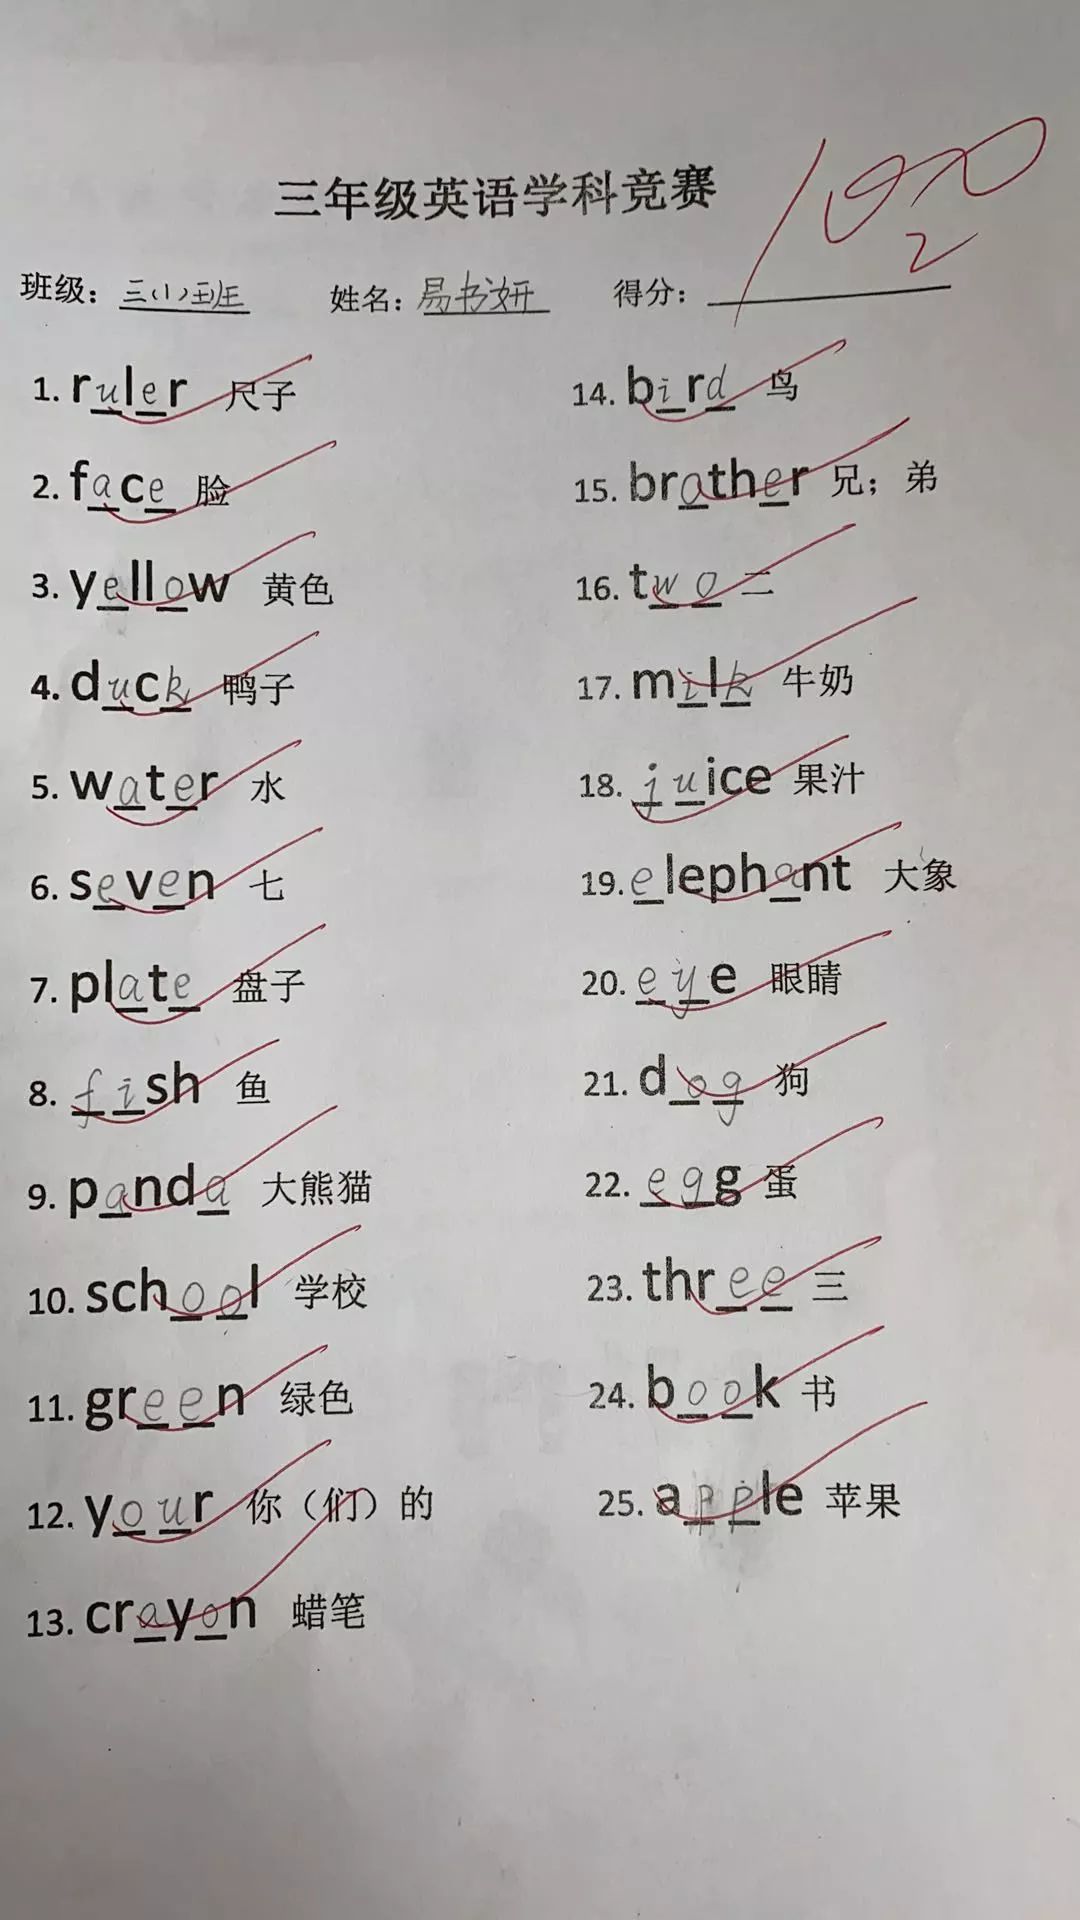 三年级英语学科竞赛
100
2
班级: 三(1)班 姓名: 易书妍 得分:
1. ruler 尺子
2. face 脸
3. yellow 黄色
4. duck 鸭子
5. water 水
6. seven 七
7. plate 盘子
8. fish 鱼
9. panda 大熊猫
10. school 学校
11. green 绿色
12. your 你（们）的
13. crayon 蜡笔
14. bird 鸟
15. brather 兄；弟
16. two 二
17. milk 牛奶
18. juice 果汁
19. elephant 大象
20. eye 眼睛
21. dog 狗
22. egg 蛋
23. three 三
24. book 书
25. apple 苹果